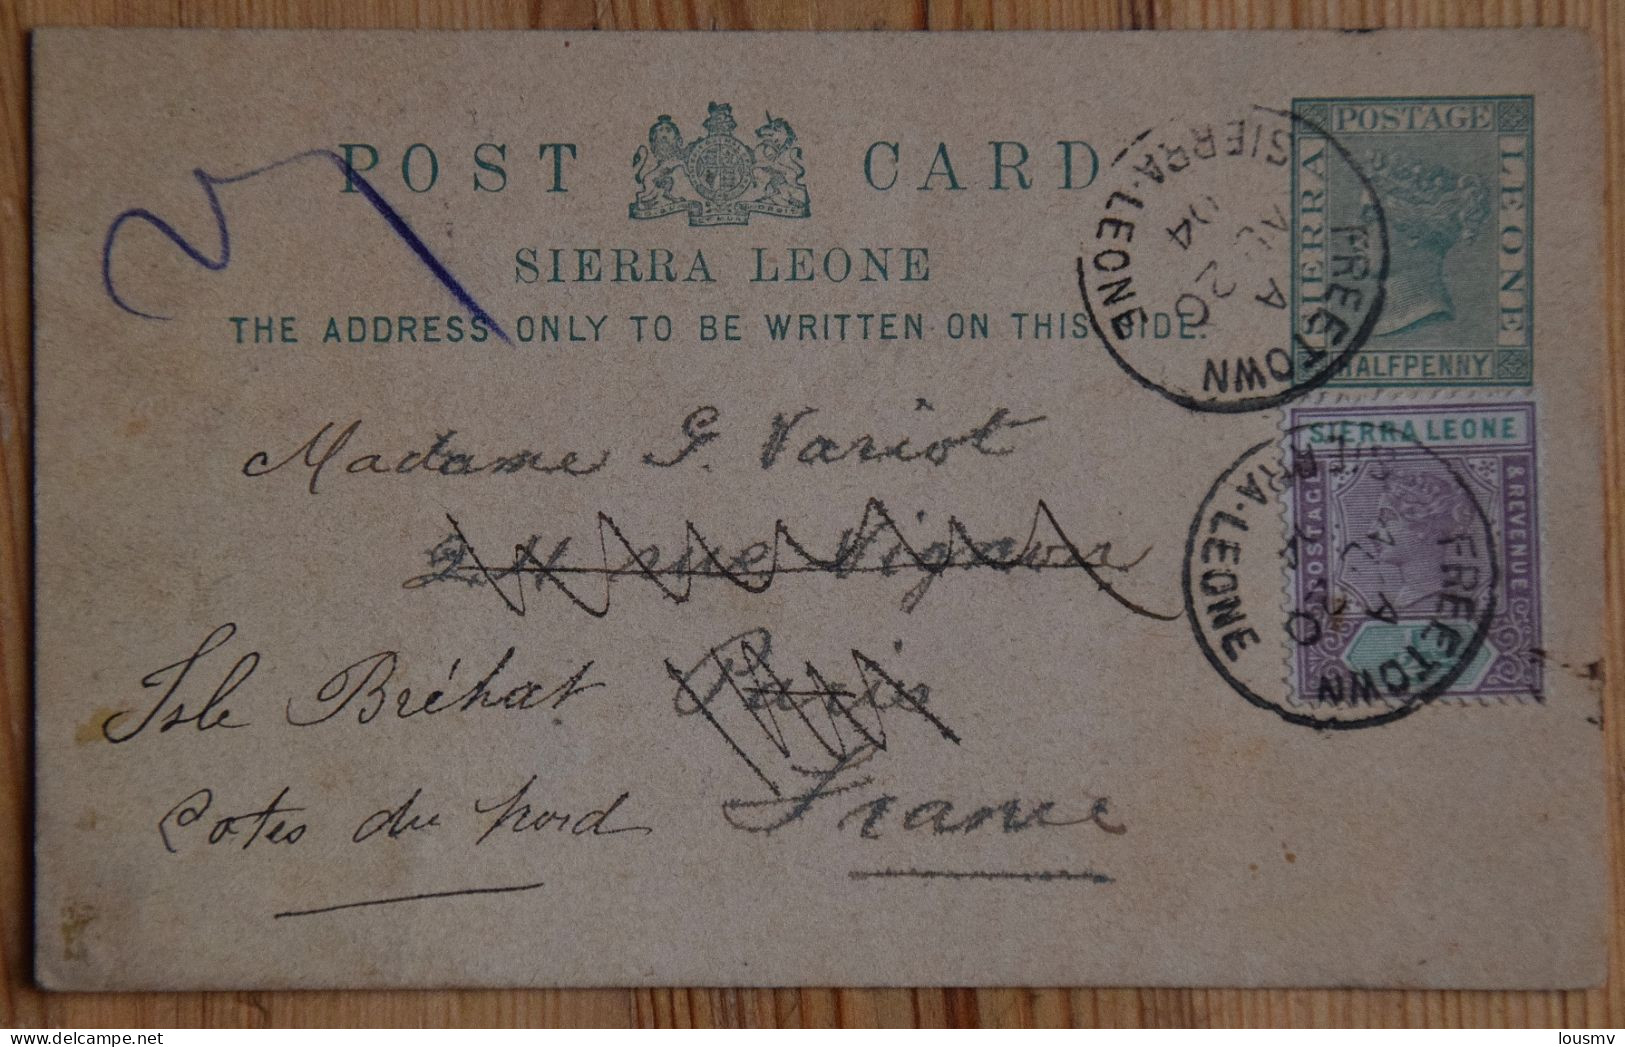 POST CARD
SIERRA LEONE
THE ADDRESS ONLY TO BE WRITTEN ON THIS SIDE.
POSTAGE
SIERRA
LEONE
HALFPENNY
FREETOWN
SIERRA·LEONE
A
AU 20
04
SIERRA LEONE
POSTAGE
& REVENUE
FREETOWN
SIERRA·LEONE
A
AU 20
04
Madame G. Variot
rue Vignon
Isle Bréhat Paris
Cotes du nord France
lousmv